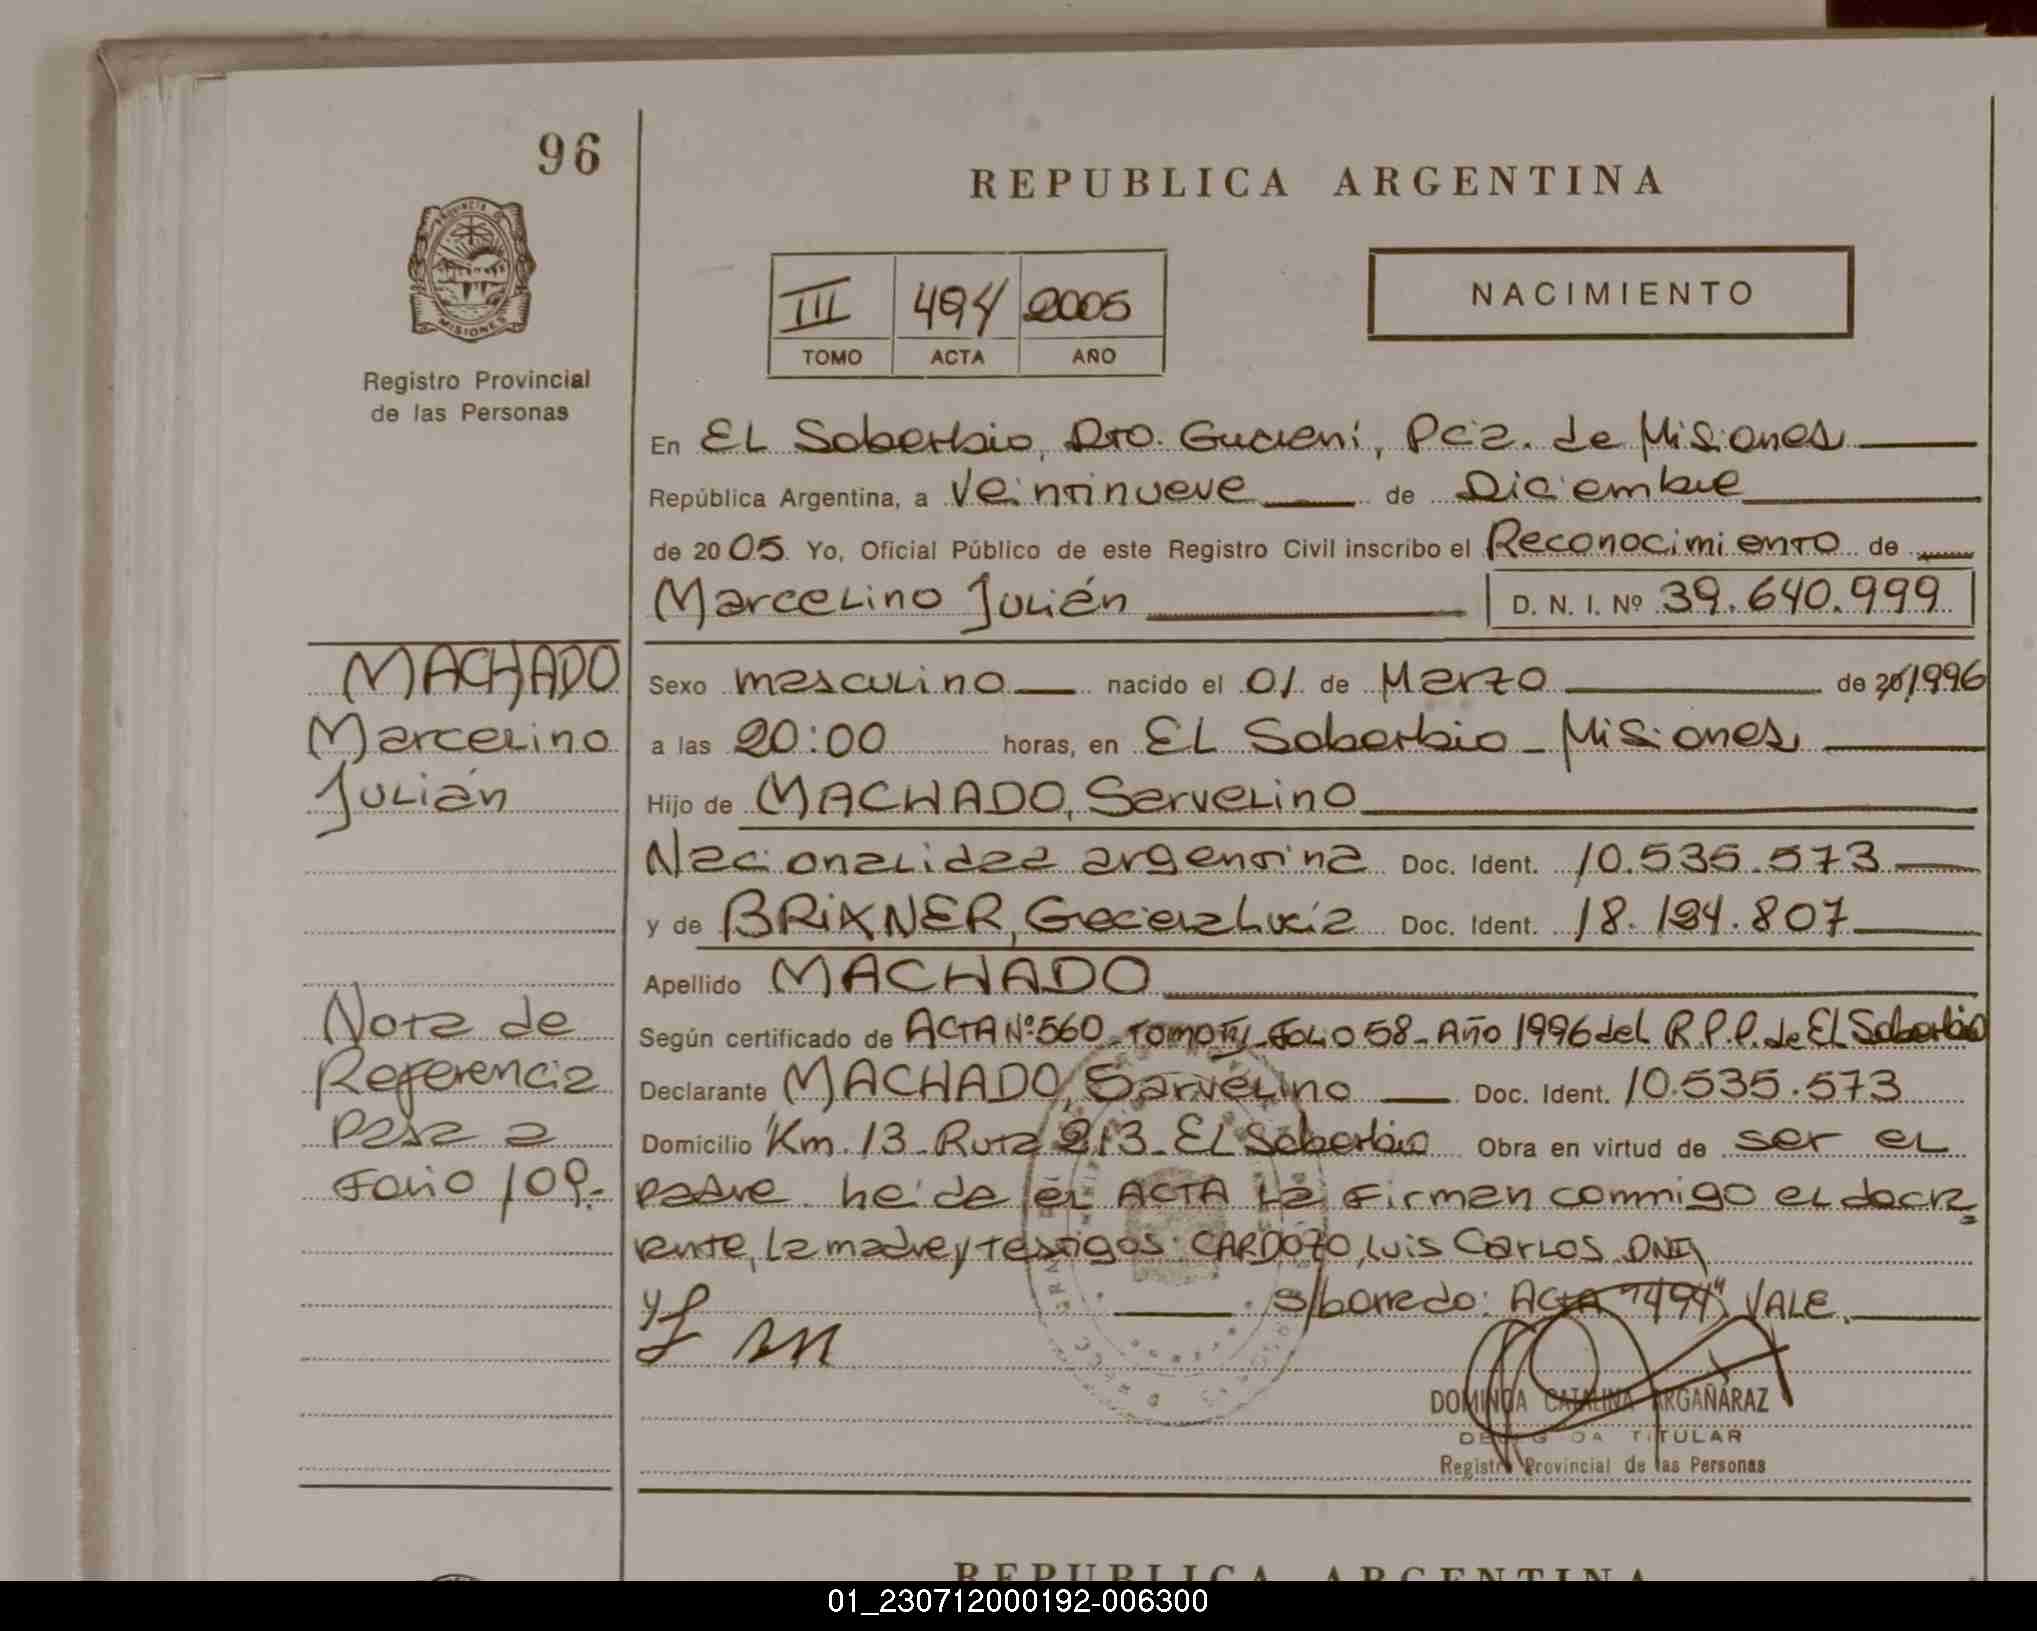 96
REPUBLICA ARGENTINA
PROVINCIA DE
MISIONES
Registro Provincial
de las Personas
III 494 2005
TOMO ACTA AÑO
NACIMIENTO
En EL Soberbio, Dto. Guarani, Pcia. de Misiones
República Argentina, a Veintinueve de Diciembre
de 2005. Yo, Oficial Público de este Registro Civil inscribo el Reconocimiento de
Marcelino Julián D. N. I. Nº 39.640.999
MACHADO
Marcelino
Julián
Sexo masculino nacido el 01 de Marzo de 20/1996
a las 20:00 horas, en EL Soberbio - Misiones
Hijo de MACHADO, Servelino
Nacionalidad argentina Doc. Ident. 10.535.573
y de BRIXNER, Lucía Doc. Ident. 18.194.807
Apellido MACHADO
Según certificado de ACTA Nº 560 - TOMO - Folio 58 - Año 1996 del R.P.P. de El Soberbio
Declarante MACHADO, Servelino Doc. Ident. 10.535.573
Domicilio Km. 13 - Ruta 213 - EL Soberbio Obra en virtud de ser el
padre. heida el ACTA la firman conmigo el decla
rante, la madre y testigos: CARDOZO, Luis Carlos DNI
y s/borredo: ACTA "494" VALE.
Nota de
Referencia
pasa a
Folio 109.-
DOMINGA CATALINA ARGAÑARAZ
DELEGADA TITULAR
Registro Provincial de las Personas
REPUBLICA ARGENTINA
01_230712000192-006300